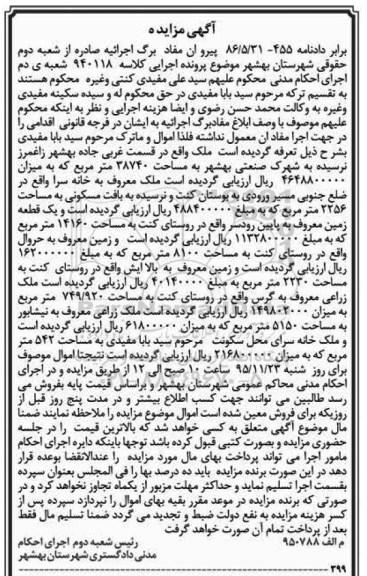 آگهی مزایده
برابر دادنامه ۴۵۵- ۸۶/۵/۳۱ پیرو ان مفاد برگ اجرائیه صادره از شعبه دوم
حقوقی شهرستان بهشهر موضوع پرونده اجرایی کلاسه ۹۴۰۱۱۸ شعبه ی دم
اجرای احکام مدنی محکوم علیهم سید علی مفیدی کنتی وغیره محکوم هستند
به تقسیم ترکه مرحوم سید بابا مفیدی در حق محکوم له و سیده سکینه مفیدی
وغیره به وکالت محمد حسن رضوی و ایضا هزینه اجرایی و نظر به اینکه محکوم
علیهم موصوف با وصف ابلاغ مفادبرگ اجرائیه به ایشان در فرجه قانونی اقدامی را
در جهت اجرا مفاد ان معمول نداشته فلذا اموال و ماترک مرحوم سید بابا مفیدی
بشرح ذیل تعرفه گردیده است ملک واقع در قسمت غربی جاده بهشهر زاغمرز
نرسیده به شهرک صنعتی بهشهر به مساحت ۳۸۷۴۰ متر مربع که به میزان
۴۶۴۸۸۰۰۰۰۰ ریال ارزیابی گردیده است ملک معروف به خانه سرا واقع در
ضلع جنوبی مسیر ورودی به بوستان کنت و نرسیده به بافت مسکونی به مساحت
۲۲۵۶ متر مربع که به مبلغ ۴۸۸۴۰۰۰۰۰ ریال ارزیابی گردیده است و یک قطعه
زمین معروف به پایین رودسر واقع در روستای کنت به مساحت ۱۴۱۶۰ متر مربع
که به مبلغ ۱۱۳۲۸۰۰۰۰۰ ریال ارزیابی گردیده است و زمین معروف به حروال
واقع در روستای کنت به مساحت ۸۱۰۰ متر مربع که به مبلغ ۱۶۲۰۰۰۰۰۰۰
ریال ارزیابی گردیده است و زمین معروف به بالا ایش واقع در روستای کنت به
مساحت ۲۲۳۰ متر مربع به مبلغ ۴۰۱۴۰۰۰۰۰ ریال ارزیابی گردیده است ملک
زراعی معروف به گرس واقع در روستای کنت به مساحت ۷۴۹/۹۲۰ متر مربع
به میزان ۱۴۹۸۰۲۰۰۰ ریال ارزیابی گردیده است ملک زراعی معروف به نیشابور
به مساحت ۵۱۵۰ متر مربع که به میزان ۶۱۸۰۰۰۰۰۰ ریال ارزیابی گردیده است
و ملک خانه سرای محل سکونت مرحوم سید بابا مفیدی به مساحت ۵۴۲ متر
مربع که به میزان ۲۱۶۸۰۰۰۰۰ ریال ارزیابی گردیده است نتیجتا اموال موصوف
برای روز شنبه ۹۵/۱۱/۲۳ ساعت ۱۰ صبح الی ۱۲ از طریق مزایده و در اجرای
احکام مدنی محاکم عمومی شهرستان بهشهر و براساس قیمت پایه بفروش می
رسد طالبین می توانند جهت کسب اطلاع بیشتر و در مدت پنج روز قبل از
روزیکه برای فروش معین شده است اموال موضوع مزایده را ملاحظه نمایند ضمنا
مال موضوع آگهی متعلق به کسی خواهد شد که بالاترین قیمت را در جلسه
حضوری مزایده و بصورت کتبی قبول کرده باشد توجها باینکه دایره اجرای احکام
مامور اجرا می تواند پرداخت بهای مال مورد مزایده را عندالاقتضا بوعده قرار
دهد در این صورت برنده مزایده باید ده درصد بها را فی المجلس بعنوان سپرده
بقسمت اجرا تسلیم نماید و حداکثر مهلت مزبور از یکماه تجاوز نخواهد کرد و در
صورتی که برنده مزایده در موعد مقرر بقیه بهای اموال را نپردازد سپرده پس از
کسر هزینه مزایده به نفع دولت ضبط و تجدید می گردد ضمنا تسلیم مال فقط
بعد از پرداخت تمام آن صورت خواهد گرفت
م الف ۹۵۰۷۸۸ رئیس شعبه دوم اجرای احکام
مدنی دادگستری شهرستان بهشهر
۳۹۹